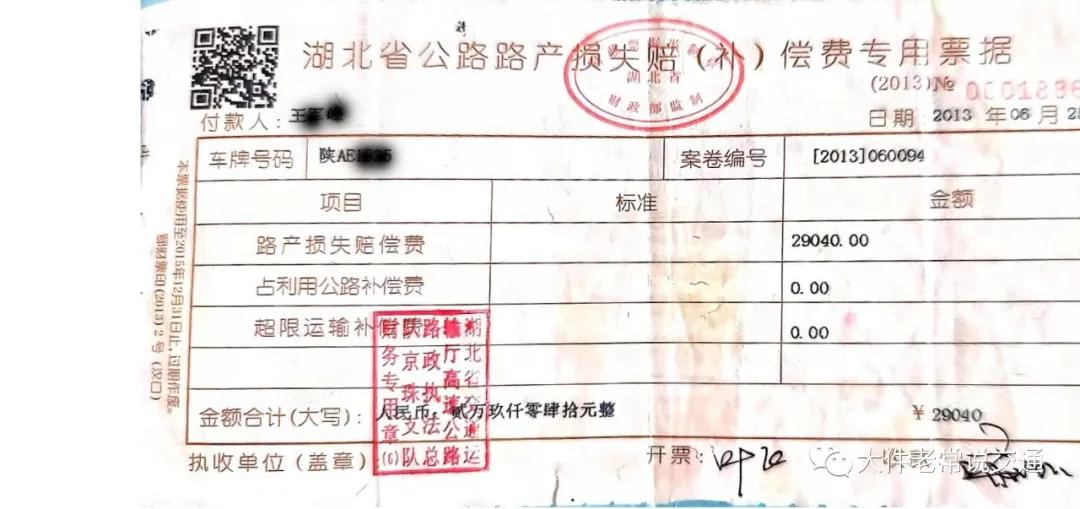 湖北省公路路产损失赔(补)偿费专用票据
湖北省
财政部监制
(2013)№ 000188
付款人: 王
日期: 2013 年 06 月 2
车牌号码 陕AE 案卷编号 [2013]060094
项目 标准 金额
路产损失赔偿费 29040.00
占利用公路补偿费 0.00
超限运输补偿费 0.00
金额合计(大写): 人民币: 贰万玖仟零肆拾元整 ¥ 29040
执收单位(盖章) 开票:
湖北省交通运
输厅高速公路
路政执法总
队京珠支队
财务专用章(6)
本票据使用至2015年12月31日止,过期作废。
鄂财票印(2013)2号(汉口)
大件老常说交通